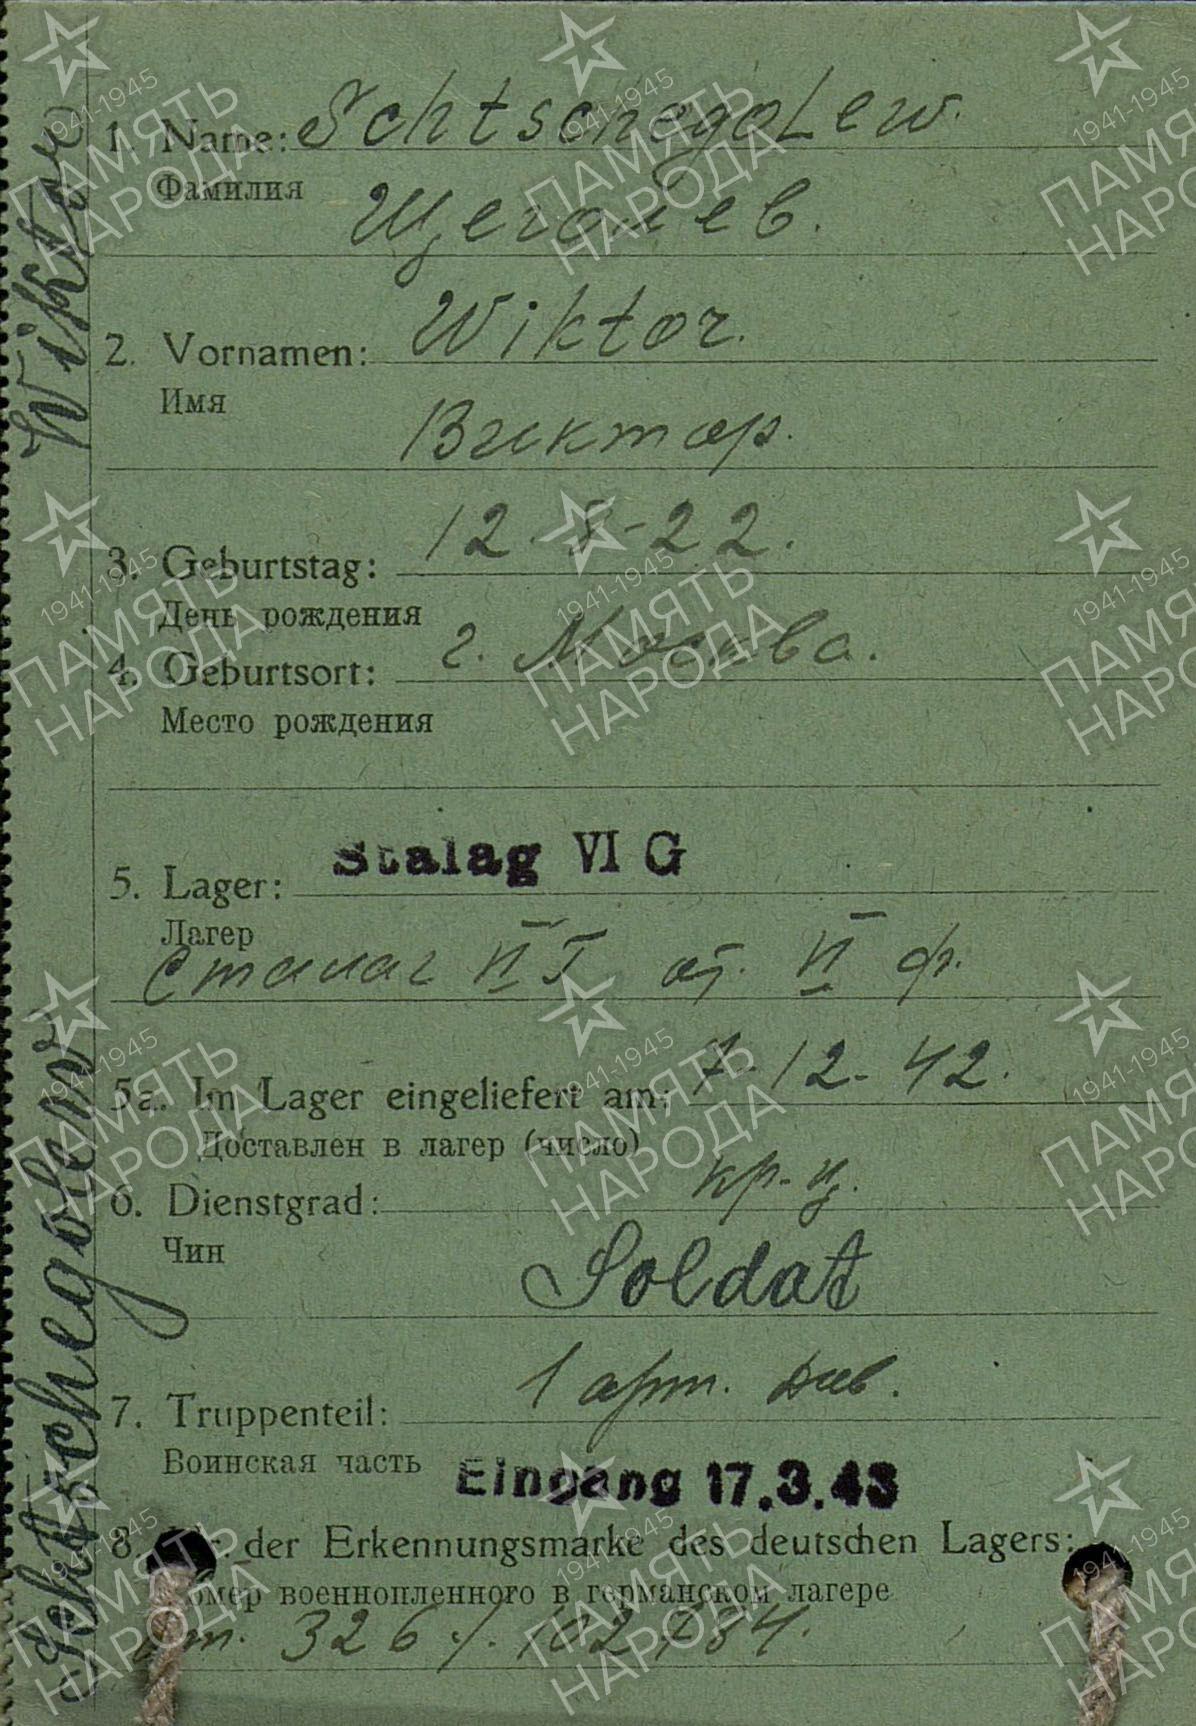 1. Name: Schtschegolew.
Фамилия
Щеголев.
2. Vornamen: Wiktor.
Имя
Виктор.
3. Geburtstag: 12-8-22.
День рождения
4. Geburtsort: г. Москва.
Место рождения
5. Lager: Stalag VI G
Лагер
сталаг VI Г от. VI ф.
5a. Im Lager eingeliefert am: 7-12-42.
Доставлен в лагер (число)
6. Dienstgrad: кр-ц.
Чин
Soldat
7. Truppenteil: 1 арт. див.
Воинская часть
Eingang 17.3.43
8. der Erkennungsmarke des deutschen Lagers:
Номер военнопленного в германском лагере
326 /. 102784.
Schtschegolew Wiktor
1941-1945
ПАМЯТЬ
НАРОДА